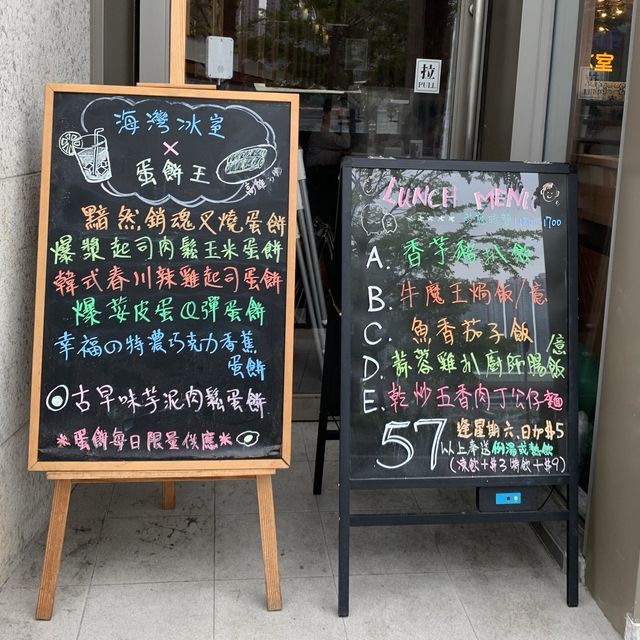 海灣冰室
×
蛋餅王
黯然銷魂叉燒蛋餅
爆漿起司肉鬆玉米蛋餅
韓式春川辣雞起司蛋餅
爆荽皮蛋Q彈蛋餅
幸福の特濃巧克力香蕉
蛋餅
古早味芋泥肉鬆蛋餅
*蛋餅每日限量供應*
拉
PULL
室
LUNCH MENU
1700
A. 香芋豬扒飯
B. 牛魔王焗飯/意
C. 魚香茄子飯
D. 蒜蓉雞扒廚師腸飯/意
E. 乾炒五香肉丁公仔麵
57 逢星期六.日加$5
以上奉送例湯或熱飲
(凍飲+$3 特飲+$9)